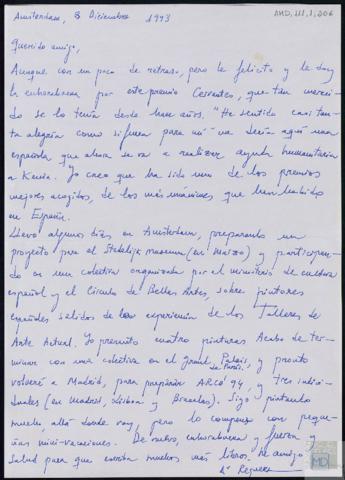 Amsterdam, 8 Diciembre 1993
AMD, III, 1, 206
Querido amigo,
Aunque con un poco de retraso, pero le felicito y le doy
la enhorabuena por este premio Cervantes, que tan mereci-
do se lo tenía desde hace años. "He sentido casi tan-
ta alegría como si fuera para mí" me decía aquí una
española que ahora se va a realizar ayuda humanitaria
a Kenia. Yo creo que ha sido uno de los premios
mejores acogidos, de los más unánimes que han habido
en España.
Llevo algunos días en Amsterdam, preparando un
proyecto para el Stedelijk museum (en Marzo) y participan-
do en una colectiva organizada por el ministerio de cultura
español y el Círculo de Bellas Artes, sobre pintores
españoles salidos de la experiencia de los Talleres de
Arte Actual. Yo presento cuatro pinturas. Acabo de ter-
minar con una colectiva en el Grand Palais, y pronto
de París.
volveré a Madrid, para preparar ARCO 94, y tres indivi-
duales (en Madrid, Lisboa y Bruselas). Sigo pintando
mucho, allá donde voy, pero lo compenso con peque-
ñas mini-vacaciones. De nuevo, enhorabuena y fuerza y
salud para que escriba muchos más libros. Su amigo
MD